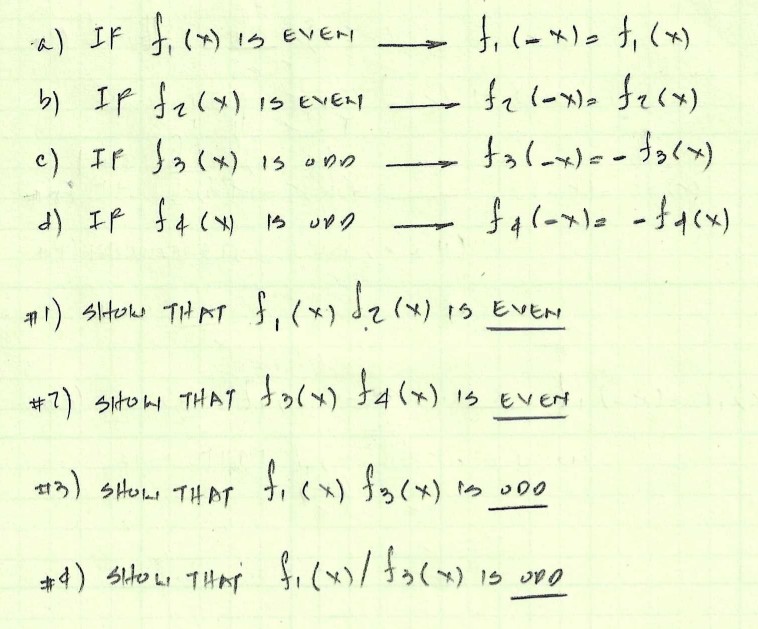 a) IF f₁(x) IS EVEN → f₁(-x) = f₁(x)
b) IF f₂(x) IS EVEN → f₂(-x) = f₂(x)
c) IF f₃(x) IS ODD → f₃(-x) = - f₃(x)
d) IF f₄(x) IS ODD → f₄(-x) = - f₄(x)
#1) SHOW THAT f₁(x) f₂(x) IS EVEN
#2) SHOW THAT f₃(x) f₄(x) IS EVEN
#3) SHOW THAT f₁(x) f₃(x) IS ODD
#4) SHOW THAT f₁(x) / f₃(x) IS ODD